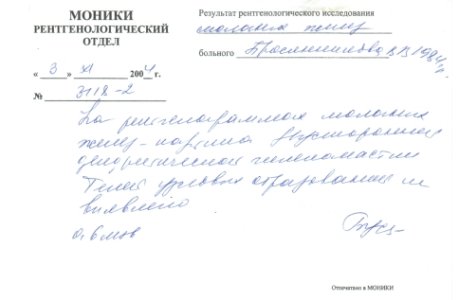 МОНИКИ
РЕНТГЕНОЛОГИЧЕСКИЙ
ОТДЕЛ
« 3 » XI 2004 г.
№ 3118-2
Результат рентгенологического исследования
молочных желез
больного В.В. 1984г.
На рентгенограммах молочных
желез - картина двусторонней
гинекомастии
Теней узловых образований не
выявлено
Отпечатано в МОНИКИ